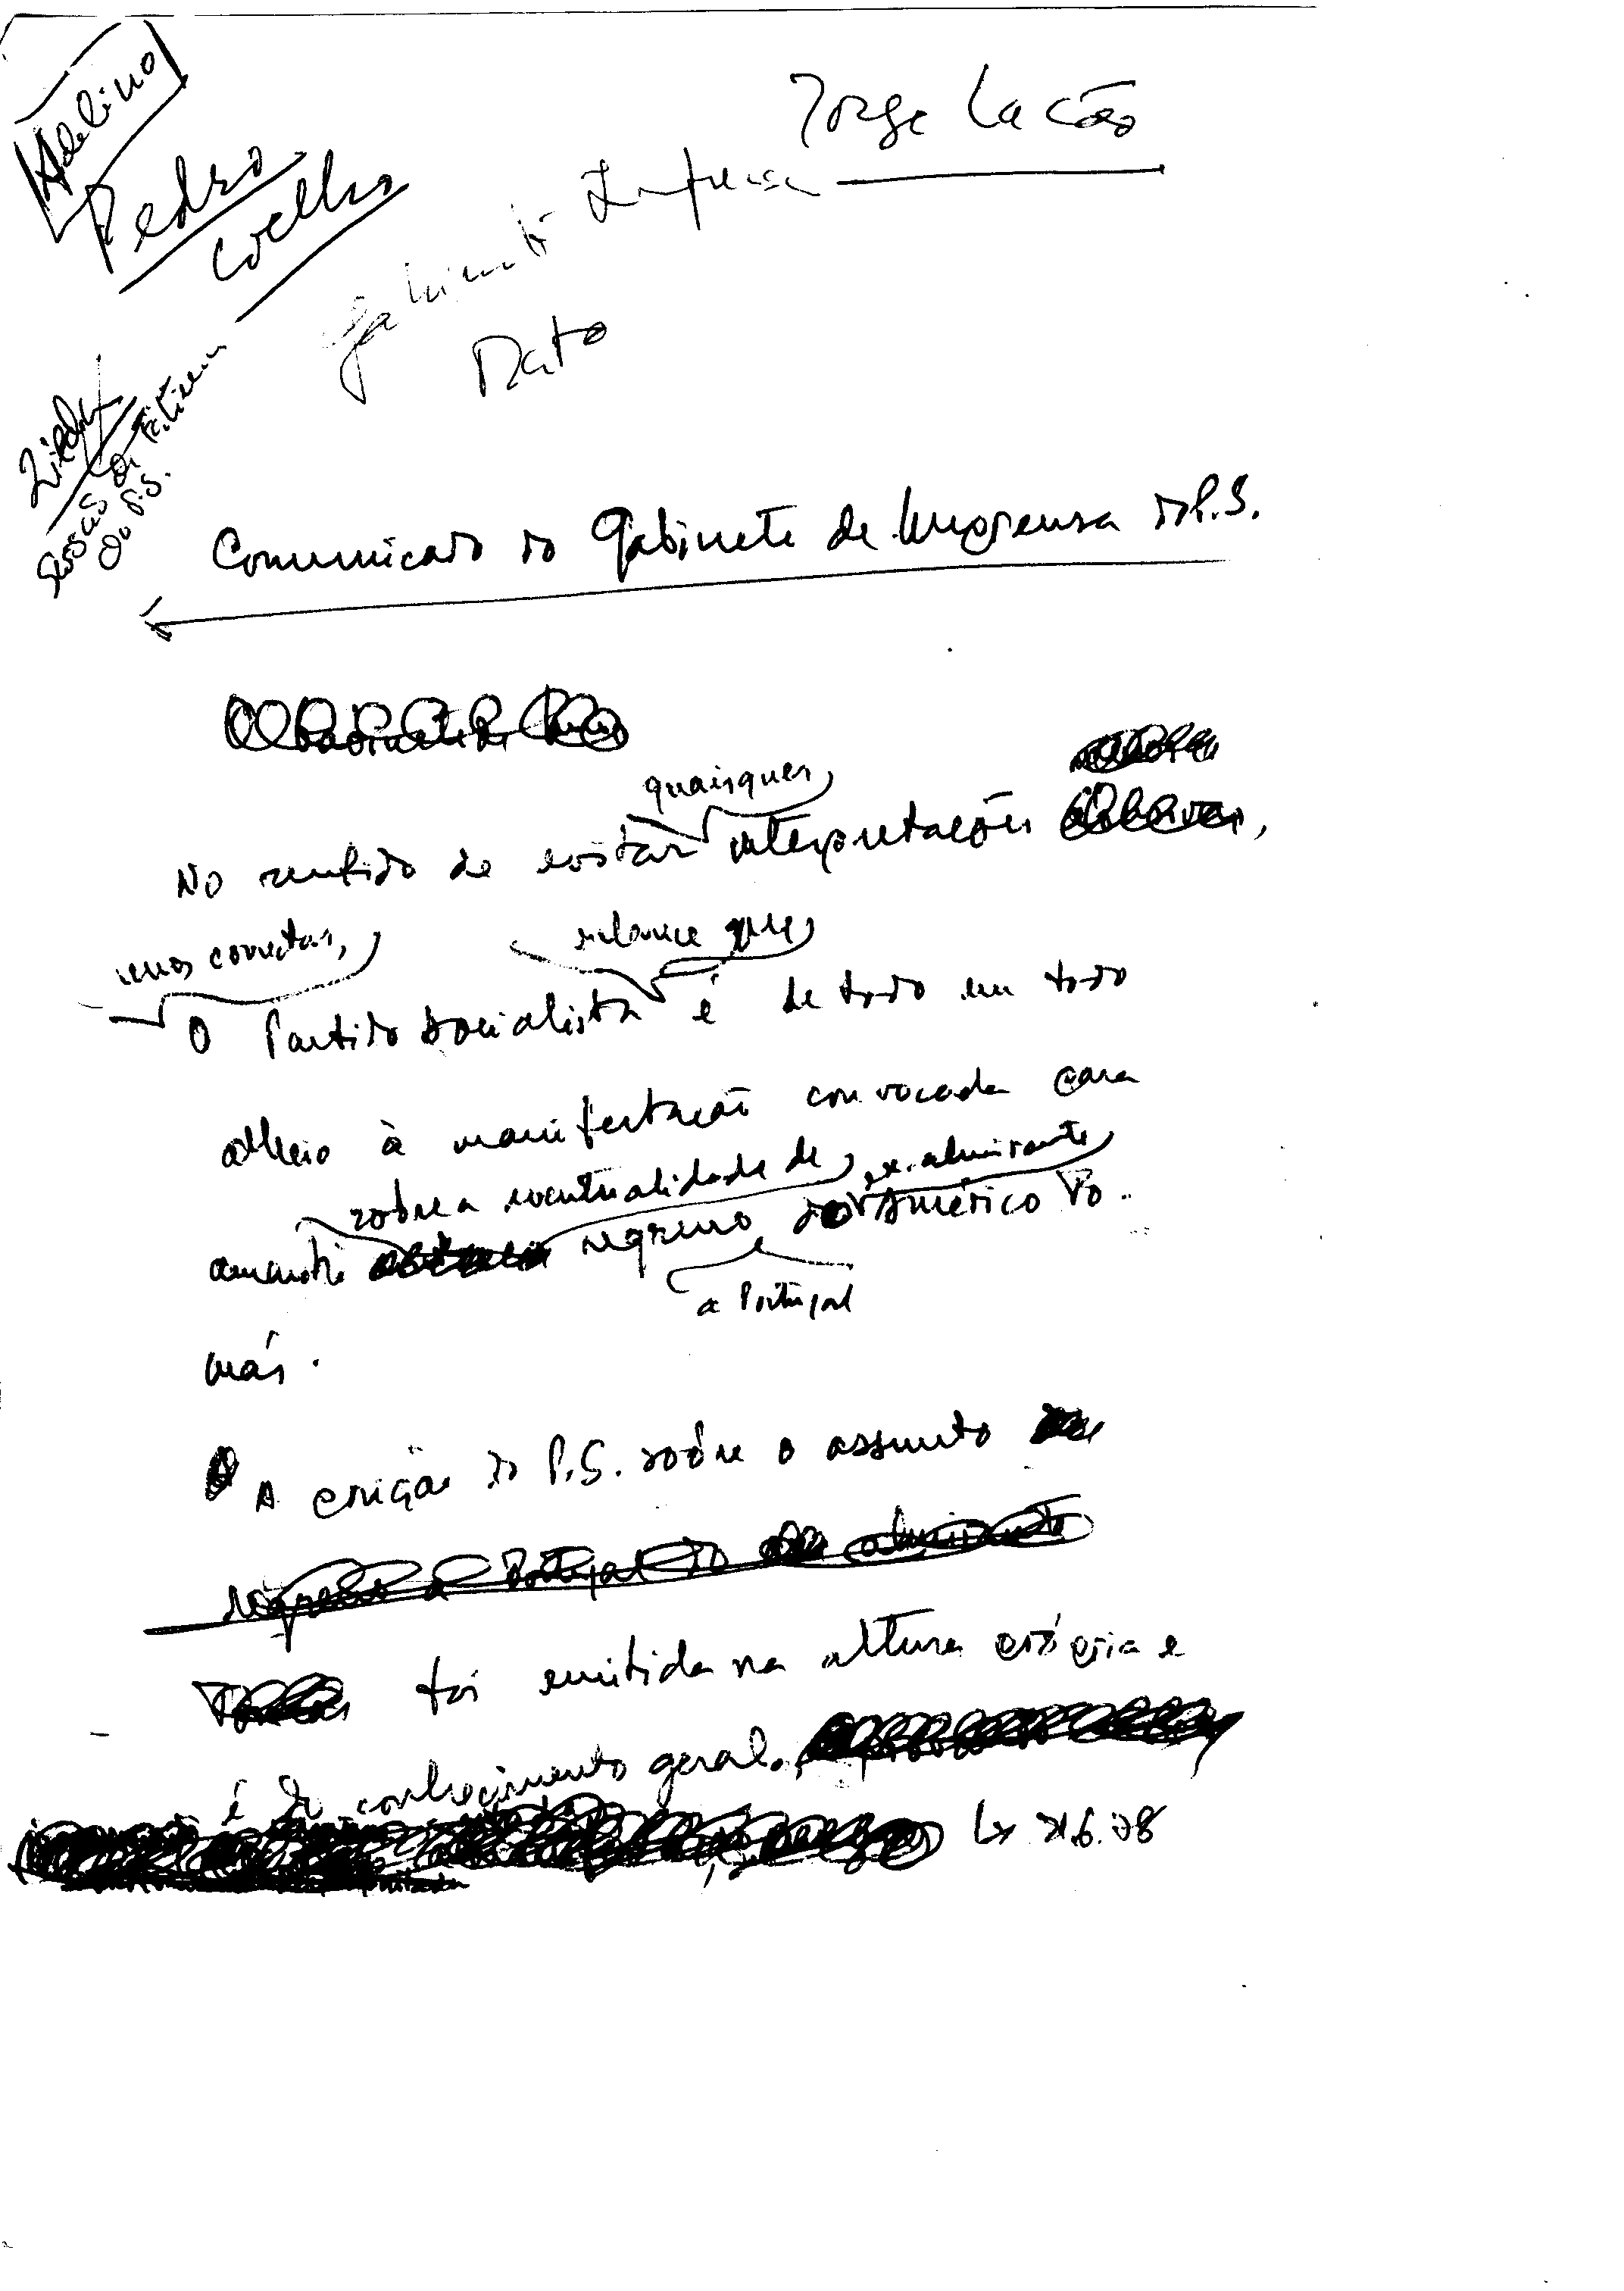 Adelino
Pedro
Coelho
Jorge Lacão
Gabinete Imprensa
Mato
do P.S.
Comunicado do Gabinete de Imprensa do P.S.
quaisquer
No sentido de evitar interpretações ,
menos correctas,
esclarece que
O Partido Socialista é de todo em todo
alheio à manifestação convocada para
sobre a eventualidade de ex. almirante
amanhã regresso do Américo To..
a Portugal
más.
A posição do P.S. sobre o assunto
regresso a Portugal do almirante
foi emitida na altura própria e
é do conhecimento geral.
Lx 21.6.78